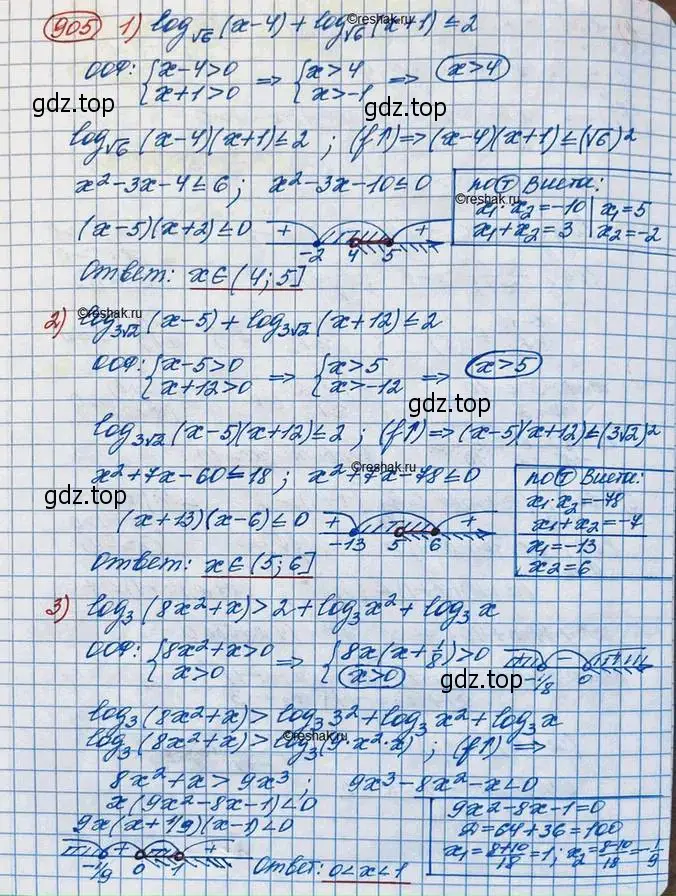 905 1) log√6 (x-4) + log√6 (x+1) ≤ 2
©reshak.ru
ООФ: {x-4>0 x+1>0 => {x>4 x>-1 => x>4
gdz.top
gdz.top
log√6 (x-4)(x+1) ≤ 2 ; (f↑) => (x-4)(x+1) ≤ (√6)²
x²-3x-4 ≤ 6; x²-3x-10 ≤ 0
по Т Виета:
©reshak.ru
x₁·x₂ = -10 | x₁ = 5
x₁+x₂ = 3 | x₂ = -2
(x-5)(x+2) ≤ 0 + + -2 4 5
Ответ: x∈(4; 5]
©reshak.ru
2) log3√2 (x-5) + log3√2 (x+12) ≤ 2
ООФ: {x-5>0 x+12>0 => {x>5 x>-12 => x>5
gdz.top
log3√2 (x-5)(x+12) ≤ 2 ; (f↑) => (x-5)(x+12) ≤ (3√2)²
x²+7x-60 ≤ 18 ; x²+7x-78 ≤ 0
©reshak.ru
по Т Виета:
x₁·x₂ = -78
x₁+x₂ = -7
x₁ = -13
x₂ = 6
gdz.top
(x+13)(x-6) ≤ 0 + + -13 5 6
Ответ: x∈(5; 6]
3) log₃ (8x²+x) > 2 + log₃ x² + log₃ x
ООФ: {8x²+x>0 x>0 => {8x(x+1/8)>0 x>0 - -1/8 0
gdz.top
log₃ (8x²+x) > log₃ 3² + log₃ x² + log₃ x
©reshak.ru
log₃ (8x²+x) > log₃ (9·x²·x) ; (f↑) =>
8x²+x > 9x³ ; 9x³-8x²-x < 0
x(9x²-8x-1) < 0
9x(x+1/9)(x-1) < 0
9x²-8x-1=0
D=64+36=100
x₁ = 8+10/18 = 1; x₂ = 8-10/18 = -1/9
- + - + -1/9 0 1
Ответ: 0<x<1
gdz.top